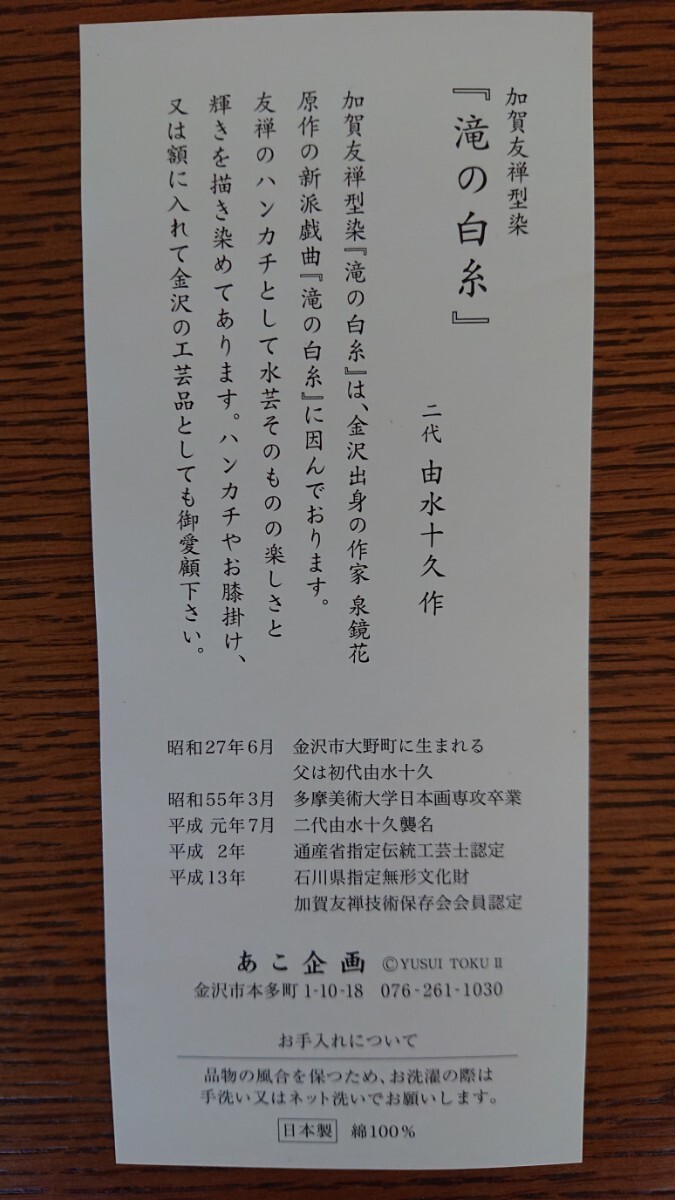 加賀友禅型染
『滝の白糸』
二代 由水十久 作
加賀友禅型染『滝の白糸』は、金沢出身の作家 泉鏡花
原作の新派戯曲『滝の白糸』に因んでおります。
友禅のハンカチとして水芸そのものの楽しさと
輝きを描き染めてあります。ハンカチやお膝掛け、
又は額に入れて金沢の工芸品としても御愛顧下さい。
昭和27年6月 金沢市大野町に生まれる
父は初代由水十久
昭和55年3月 多摩美術大学日本画専攻卒業
平成 元年7月 二代由水十久襲名
平成 2年 通産省指定伝統工芸士認定
平成13年 石川県指定無形文化財
加賀友禅技術保存会会員認定
あこ企画 ©YUSUI TOKU II
金沢市本多町 1-10-18 076-261-1030
お手入れについて
品物の風合を保つため、お洗濯の際は
手洗い又はネット洗いでお願いします。
日本製 綿100%